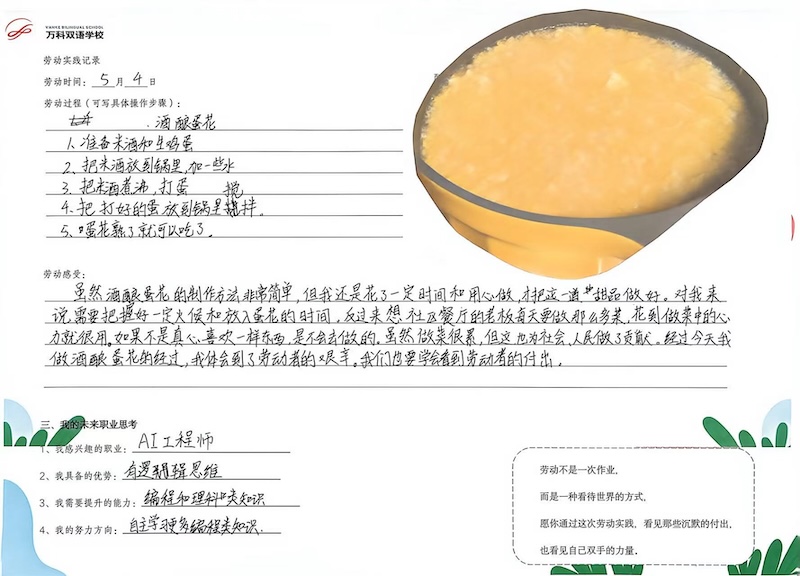 VANKE BILINGUAL SCHOOL
万科双语学校
劳动实践记录
劳动时间：5月4日
劳动过程（可写具体操作步骤）：
酒酿蛋花
1、准备米酒和生鸡蛋
2、把米酒放到锅里，加一些水
3、把米酒煮沸，打蛋
4、把打好的蛋放到锅里搅拌。
5、蛋花熟了就可以吃了。
劳动感受：
虽然酒酿蛋花的制作方法非常简单，但我还是花了一定时间和用心做，才把这一道甜品做好。对我来
说，需要把握好一定火候和放入蛋花的时间，反过来想社区餐厅的老板每天要做那么多菜，花到做菜中的心
力就很用。如果不是真心喜欢一样东西，是不会去做的。虽然做菜很累，但这也为社会，人民做了贡献。经过今天我
做酒酿蛋花的经过，我体会到了劳动者的艰辛。我们也要学会看到劳动者的付出。
三、我的未来职业思考
1、我感兴趣的职业：AI工程师
2、我具备的优势：有逻辑思维
3、我需要提升的能力：编程和理科类知识
4、我的努力方向：自主学习更多编程类知识.
劳动不是一次作业，
而是一种看待世界的方式，
愿你通过这次劳动实践，看见那些沉默的付出，
也看见自己双手的力量。